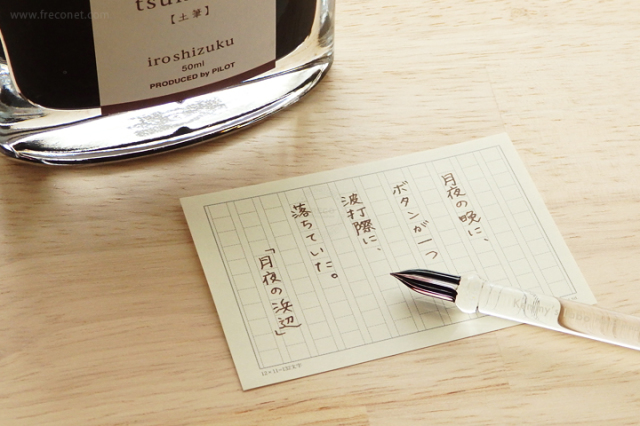 www.freconet.com
【土筆】
iroshizuku
50ml
PRODUCED by PILOT
月夜の晩に、
ボタンが一つ
波打際に、
落ちていた。
「月夜の浜辺」